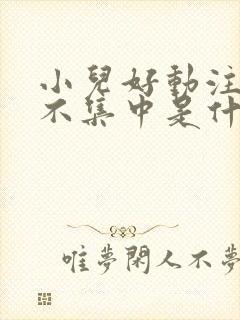 小兒好動注
不集中是什
唯夢閑人不夢